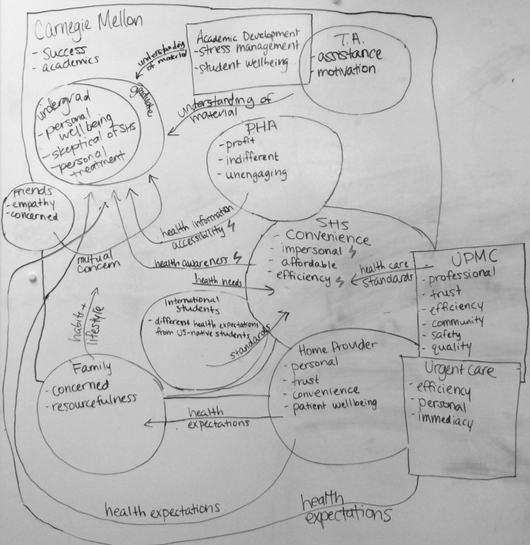 Carnegie Mellon
- success
- academics
Academic Development
- stress management
- student wellbeing
T.A.
- assistance
- motivation
understanding
of material
graduate
undergrad
- personal
wellbeing
- skeptical of SHS
- personal
treatment
understanding of
material
PHA
- profit
- indifferent
- unengaging
Friends
- empathy
- concerned
mutual
concern
health information
accessibility
health awareness
health needs
SHS
- convenience
- impersonal
- affordable
- efficiency
health care
standards
UPMC
- professional
- trust
- efficiency
- community
- safety
- quality
International
students
- different health expectations
from US-native students
standards
habits +
lifestyle
Family
- concerned
- resourcefulness
health
expectations
Home Provider
- personal
- trust
- convenience
- patient wellbeing
Urgent care
- efficiency
- personal
- immediacy
health expectations
health
expectations